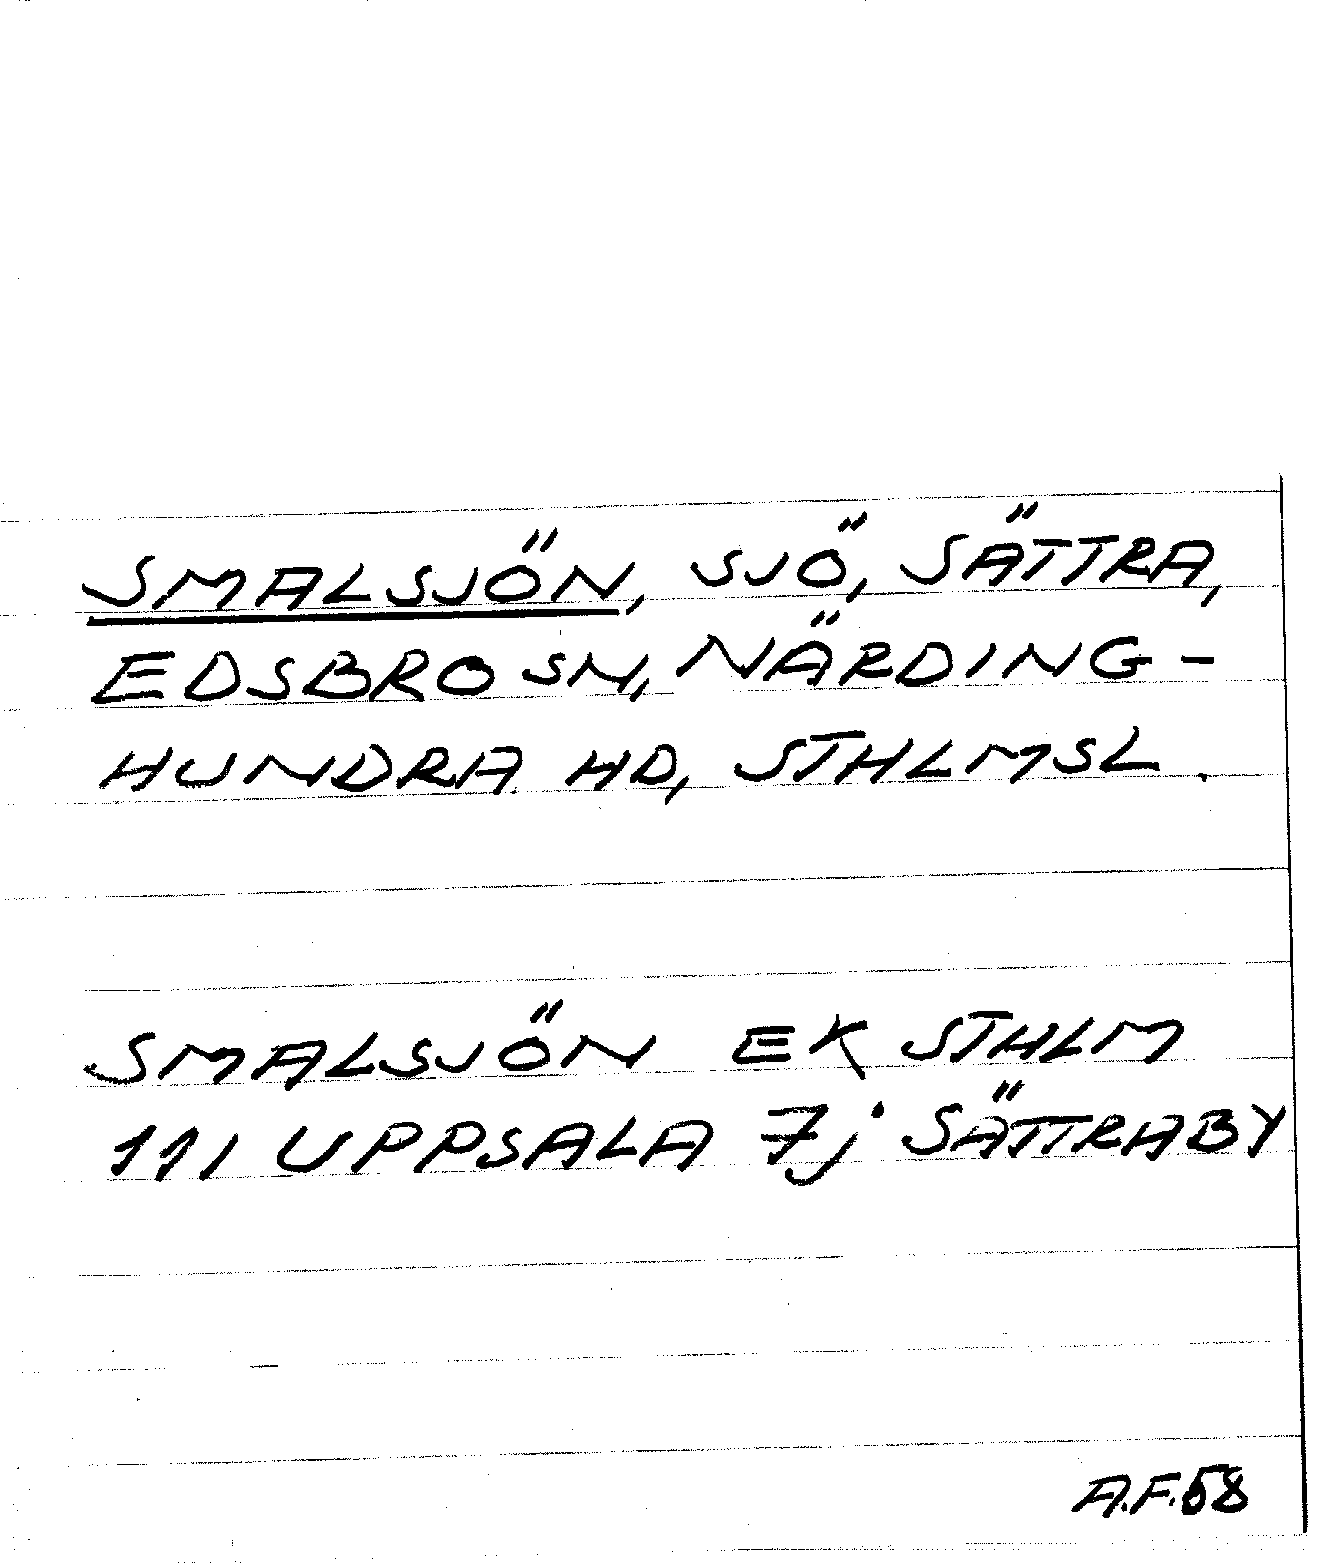 SMALSJÖN, SJÖ, SÄTTRA,
EDSBRO SN, NÄRDING-
HUNDRA HD, STHLMSL.
SMALSJÖN EK STHLM
111 UPPSALA 7j SÄTTRABY
A.F.58